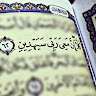 إِنَّ مَعِيَ رَبِّي سَيَهْدِينِ ٦٢